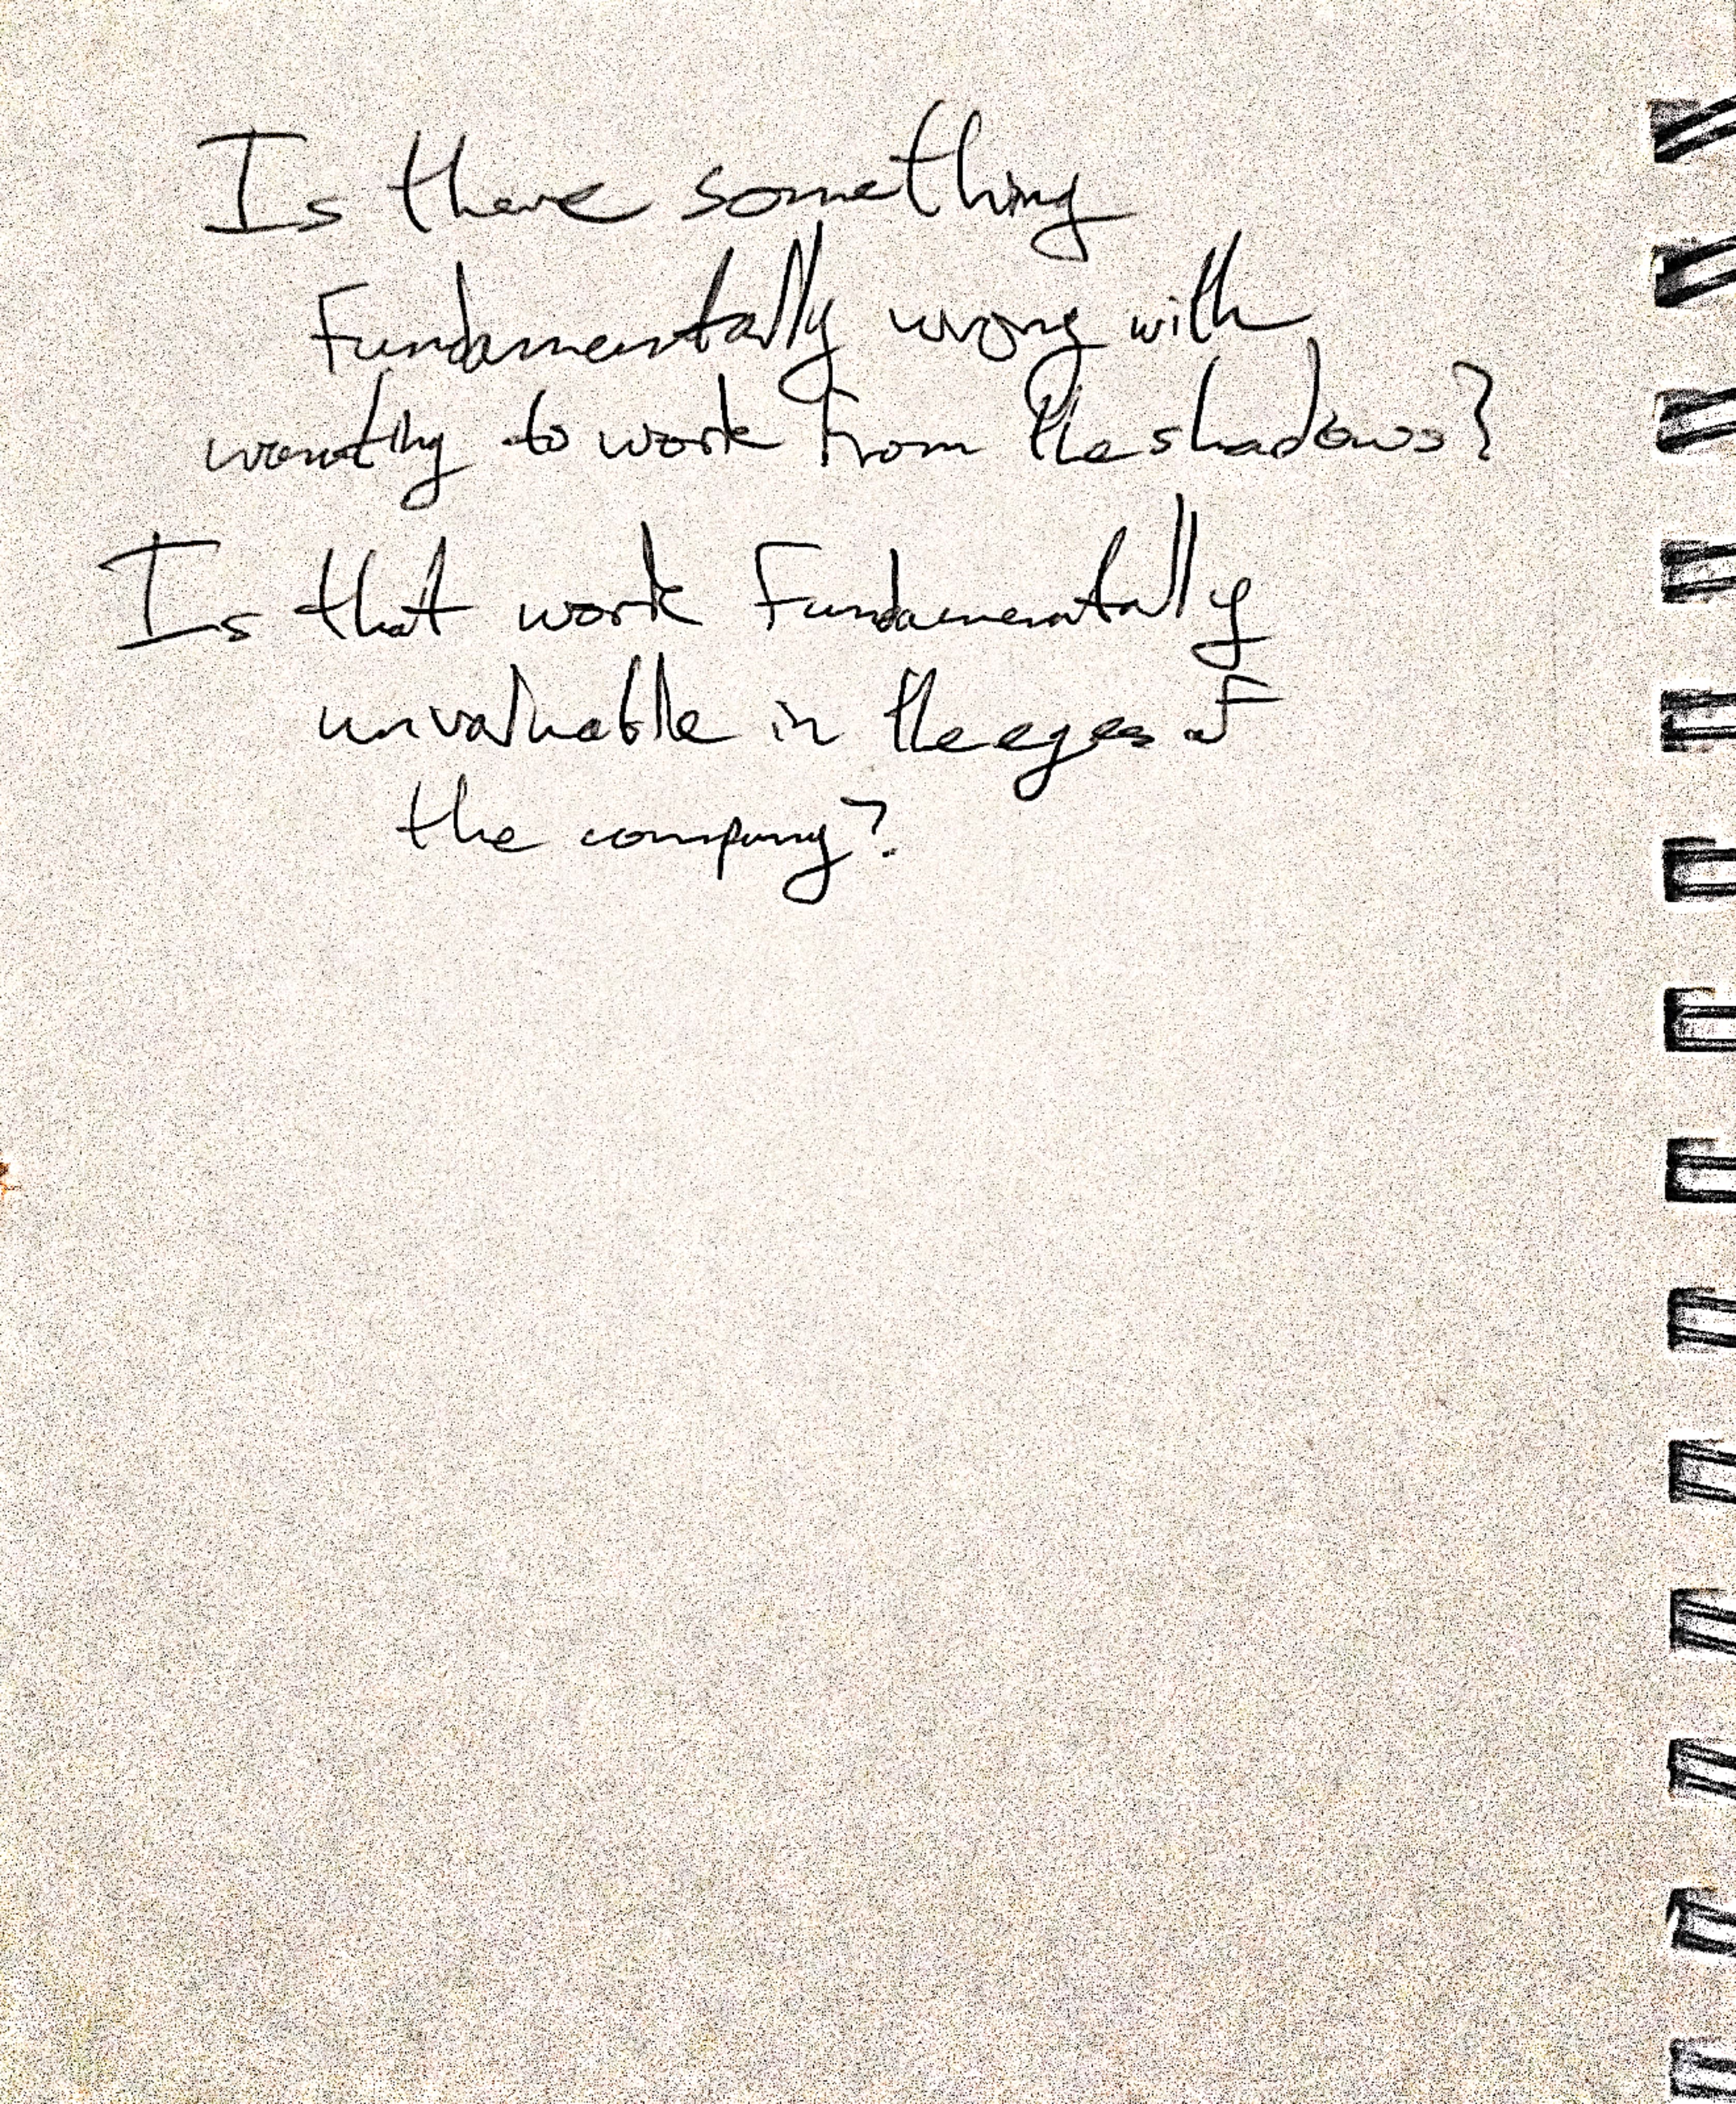 Is there something
Fundamentally wrong with
wanting to work from the shadows?
Is that work Fundamentally
unvaluable in the eyes of
the company?